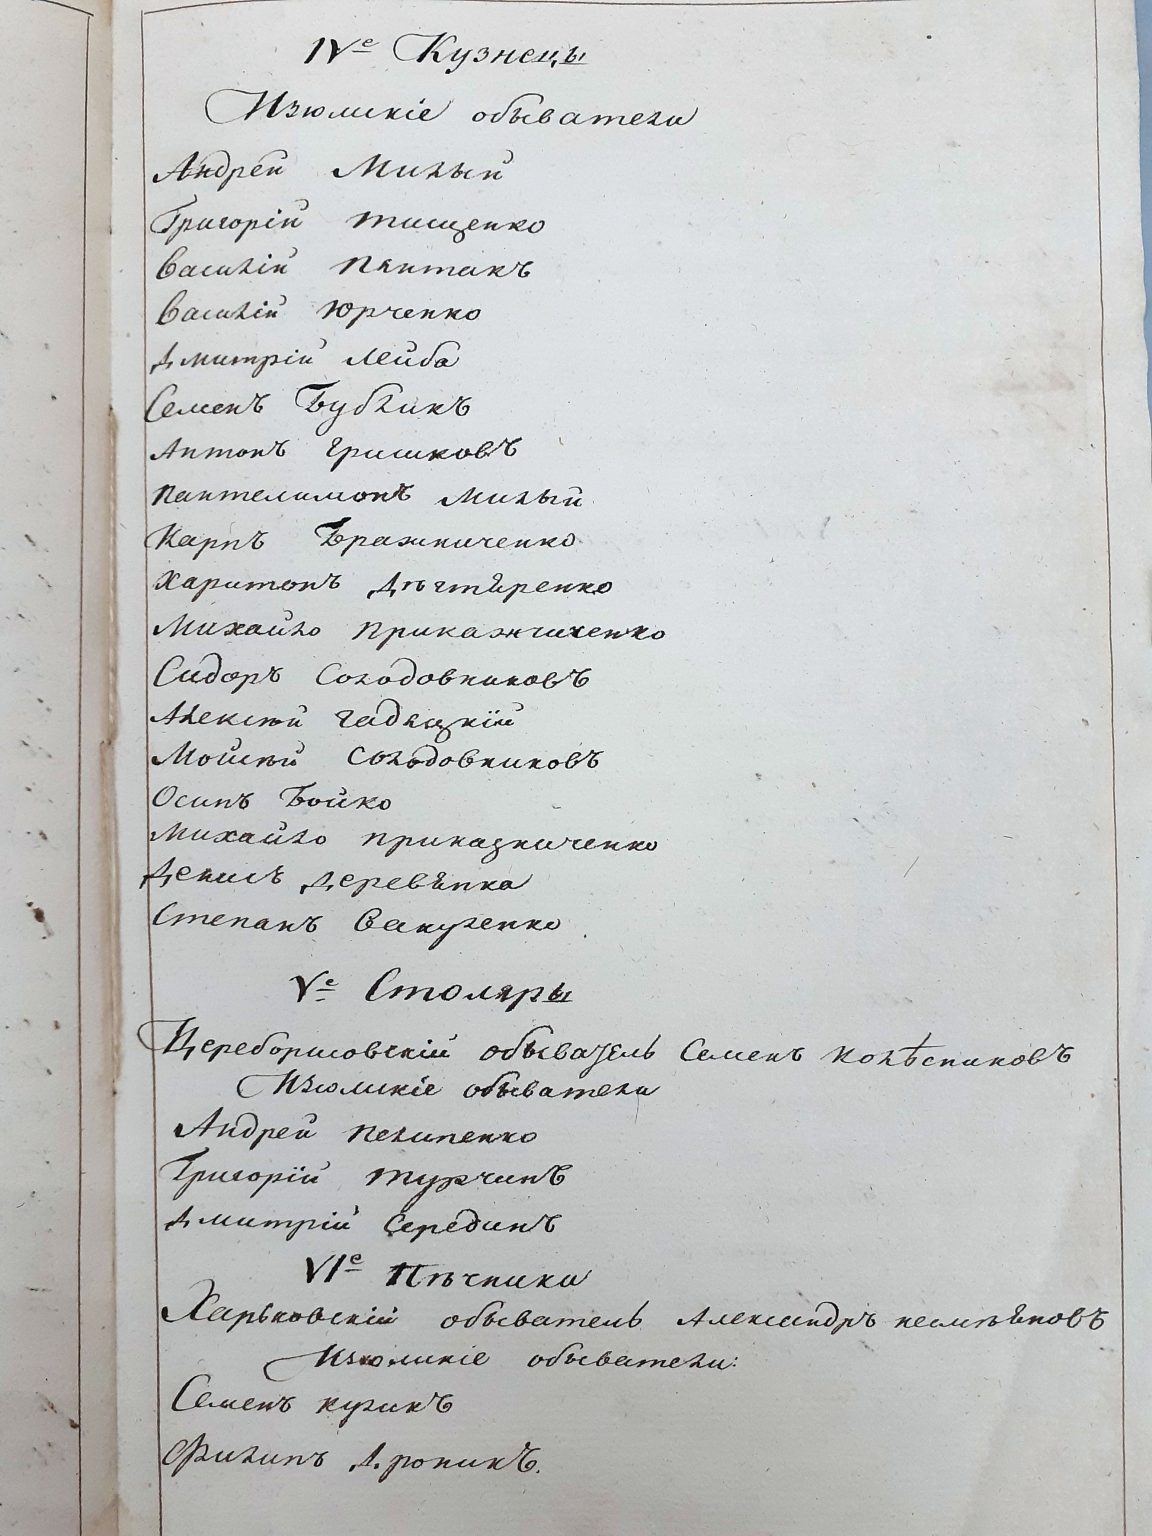 IVе Кузнецы
Изюмскіе обыватели
Андрей Милый
Григорій Тищенко
Василій Пянтакъ
Василій Юрченко
Дмитрій Лейба
Семенъ Бубликъ
Антонъ Гришковъ
Пантелимонъ Милый
Карпъ Бражниченко
Харитонъ Дѣгтяренко
Михайло Прикажчиченко
Сидоръ Солодовниковъ
Алексѣй Гадяцкій
Мойсѣй Солодовниковъ
Осипъ Бойко
Михайло Приказниченко
Денисъ Деревянка
Степанъ Вакуленко
Vе Столяры
Цереборисовскій обыватель Семенъ Колѣсниковъ
Изюмскіе обыватели
Андрей Пелипенко
Григорій Турчинъ
Дмитрій Серединъ
VIе Пѣчники
Харьковскій обыватель Александръ
Изюмскіе обыватели:
Семенъ Куликъ
Филипъ